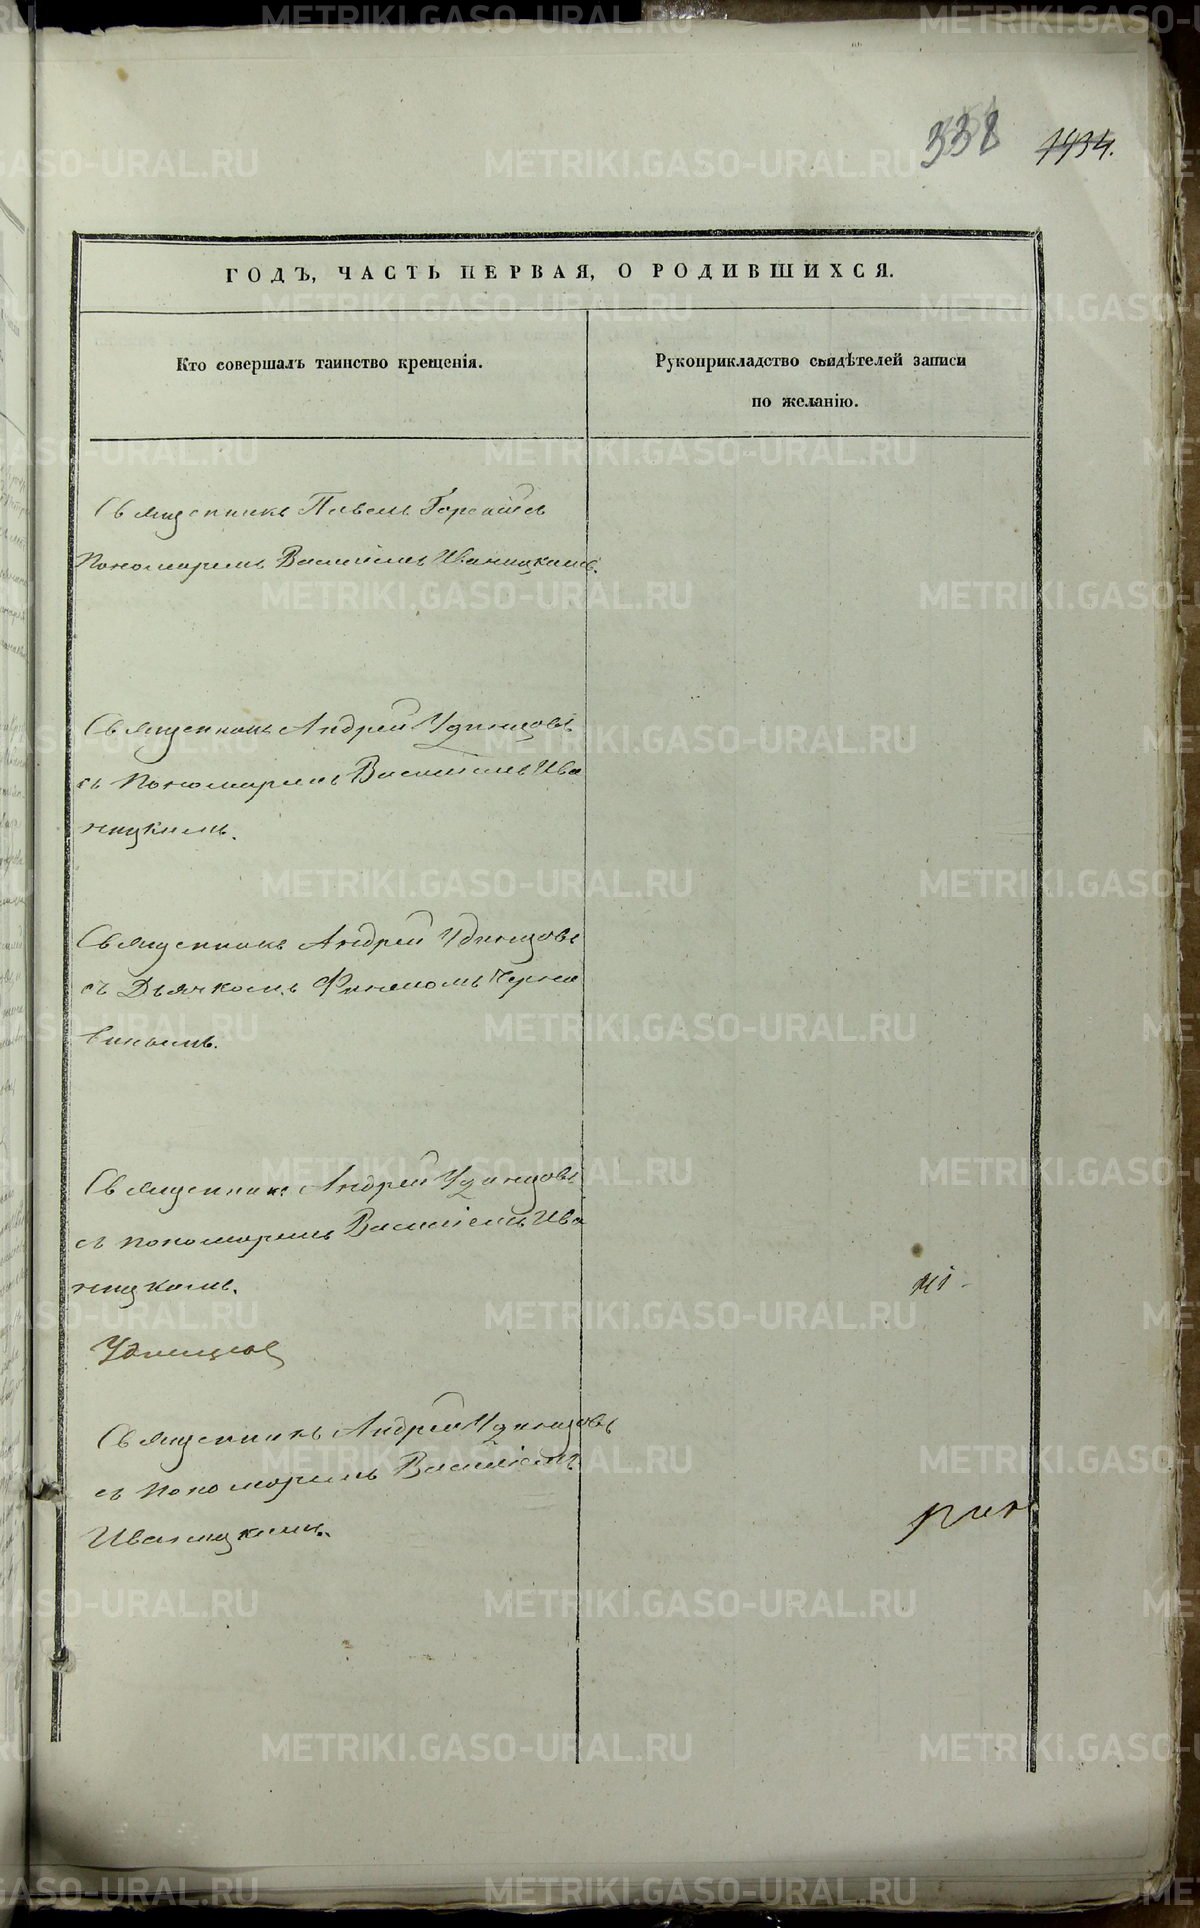 338 1434.
ГОДЪ, ЧАСТЬ ПЕРВАЯ, О РОДИВШИХСЯ.
Кто совершалъ таинство крещенія.
Рукоприкладство свидѣтелей записи
по желанію.
Священникъ Павелъ
Пономаремъ Василіемъ Иваницкимъ.
Священникъ Андрей Удинцовъ
съ Пономаремъ Василіемъ Ива
ницкимъ.
Священникъ Андрей Удинцовъ
съ Дьячкомъ Финеломъ Черня
винымъ.
Священникъ Андрей Удинцовъ
съ пономаремъ Василіемъ Ива
ницкимъ.
Удинцов
Священникъ Андрей Удинцовъ
съ пономаремъ Василіемъ
Иваницкимъ.
METRIKI.GASO-URAL.RU